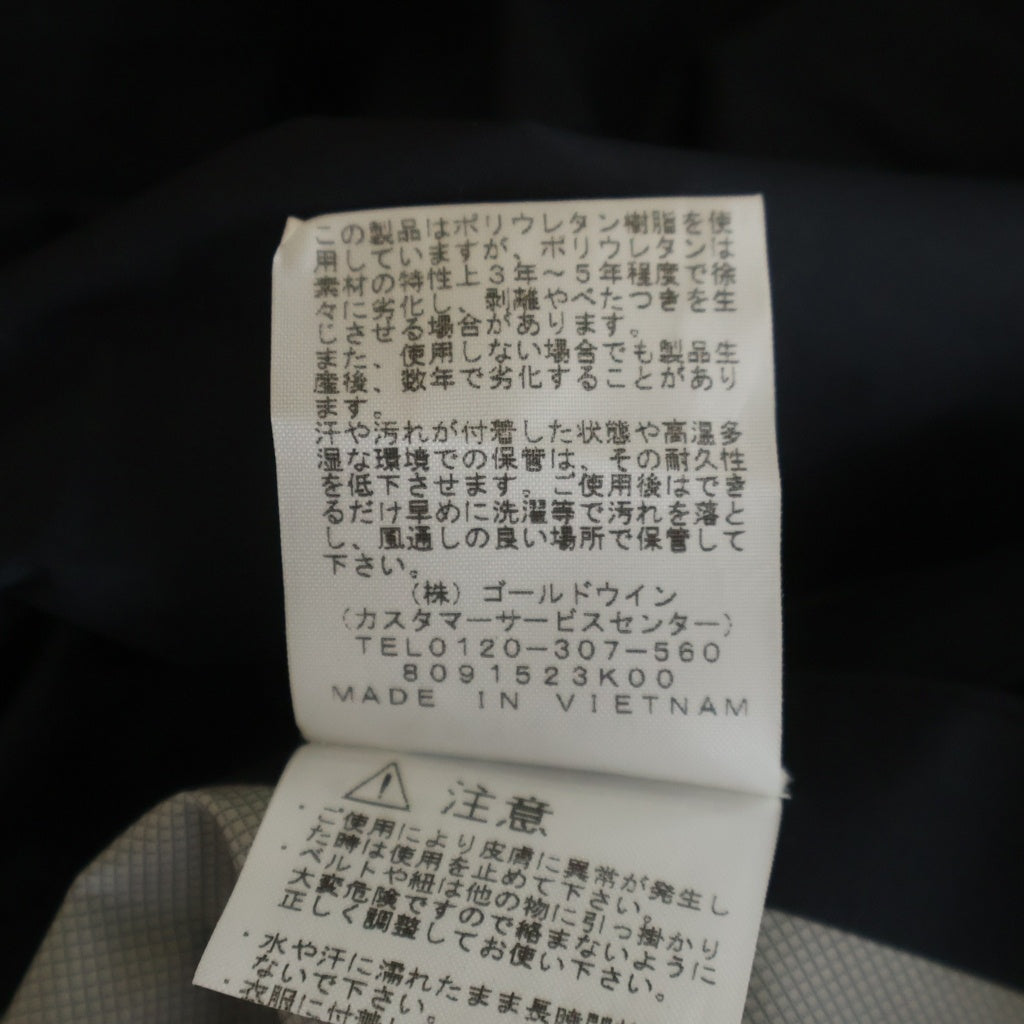 この製品はポリウレタン樹脂を使
用していますが、ポリウレタンは
素材の特性上3年～5年程度で徐
々に劣化し、剥離やべたつきを生
じさせる場合があります。
また、使用しない場合でも製品生
産後、数年で劣化することがあり
ます。
汗や汚れが付着した状態や高温多
湿な環境での保管は、その耐久性
を低下させます。ご使用後はでき
るだけ早めに洗濯等で汚れを落と
し、風通しの良い場所で保管して
下さい。
(株)ゴールドウイン
(カスタマーサービスセンター)
TEL0120-307-560
8091523K00
MADE IN VIETNAM
注意
・ご使用により皮膚に異常が発生し
た時は使用を止めて下さい。
・ベルトや紐は他の物に引っ掛かり
大変危険ですので絡まないように
正しく調整してお使い下さい。
・水や汗に濡れたまま長時間
ないで下さい。
・衣服に付着し